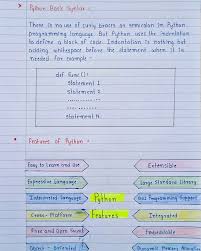 Python Basic Syntax :-
There is no use of curly braces or semicolon in Python
programming language. But Python uses the indentation
to define a block of code. Indentation is nothing but
adding whitespace before the statement when it is
needed. For example -
def func():
Statement 1
Statement 2
..............
..............
Statement N
Features of Python :-
Easy to Learn and Use
Extensible
Expressive Language
Large Standard Library
Interpreted Language
Python
GUI Programming Support
Cross-Platform
Features
Integrated
Free and Open Source
Embeddable
Object-Oriented
Dynamic Memory Allocation